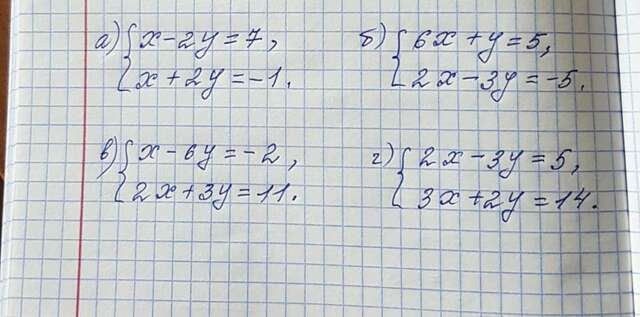 а) { x - 2y = 7,
x + 2y = -1.
б) { 6x + y = 5,
2x - 3y = -5.
в) { x - 6y = -2,
2x + 3y = 11.
г) { 2x - 3y = 5,
3x + 2y = 14.